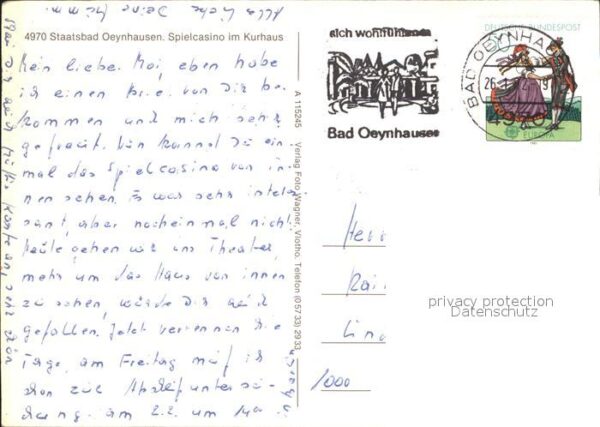 4970 Staatsbad Oeynhausen. Spielcasino im Kurhaus
Mein liebe. Mai, eben habe
ich einen Brief von Dir be
kommen und mich sehr
gefreut. Nun kannst Du ein
mal das Spielcasino von in
nen sehen. Es war sehr interes
sant, aber nocheinmal nicht!
Heute gehen wir ins Theater,
mehr um das Haus von innen
zu sehen, würde Dir auch
gefallen. Jetzt verrennen die
Tage, am Freitag muß ich
schon zur Abschlußuntersu-
chung. am 2.2. um
Alles Liebe Deine
A 115245 Verlag Foto Wagner, Vlotho. Telefon (05733) 2933.
sich wohlfühlen
Bad Oeynhausen
BAD OEYNHAUSEN
26.1.
4970
DEUTSCHE BUNDESPOST
EUROPA
Herr
Rai
Lin
1000
privacy protection
Datenschutz